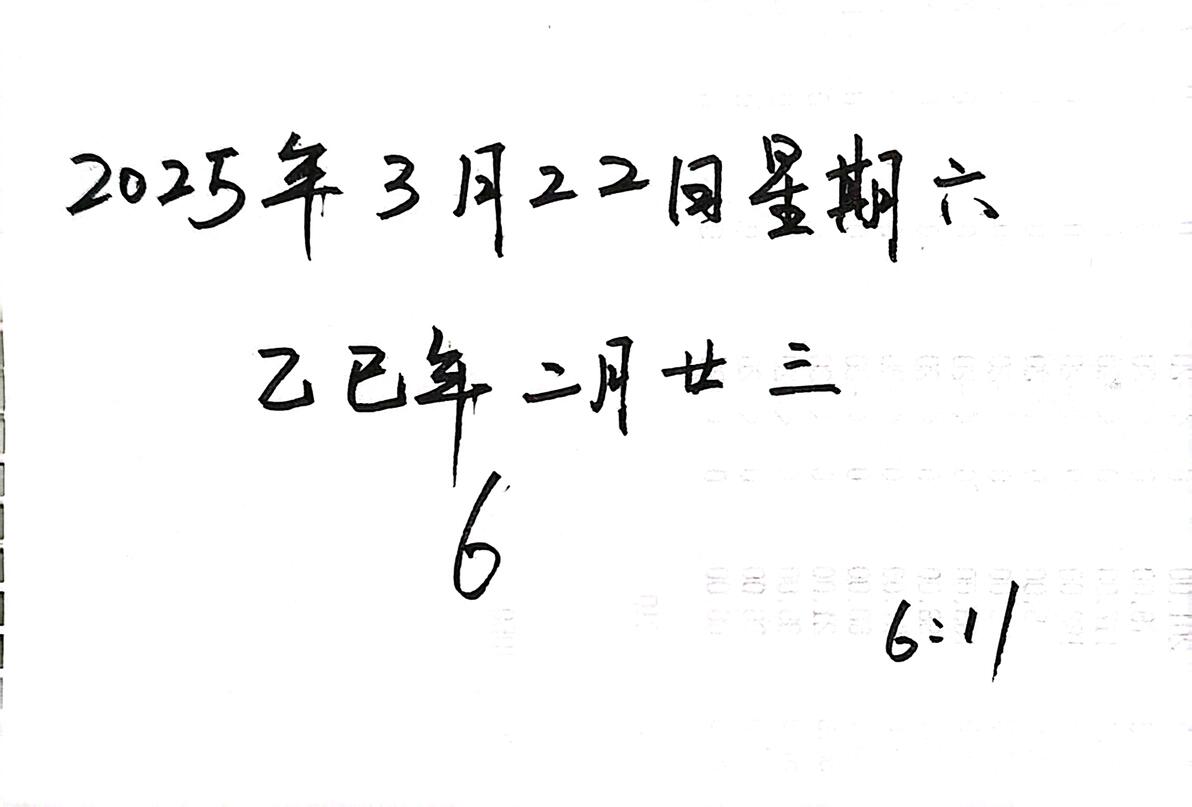 2025年3月22日星期六
乙巳年二月廿三
6
6:11